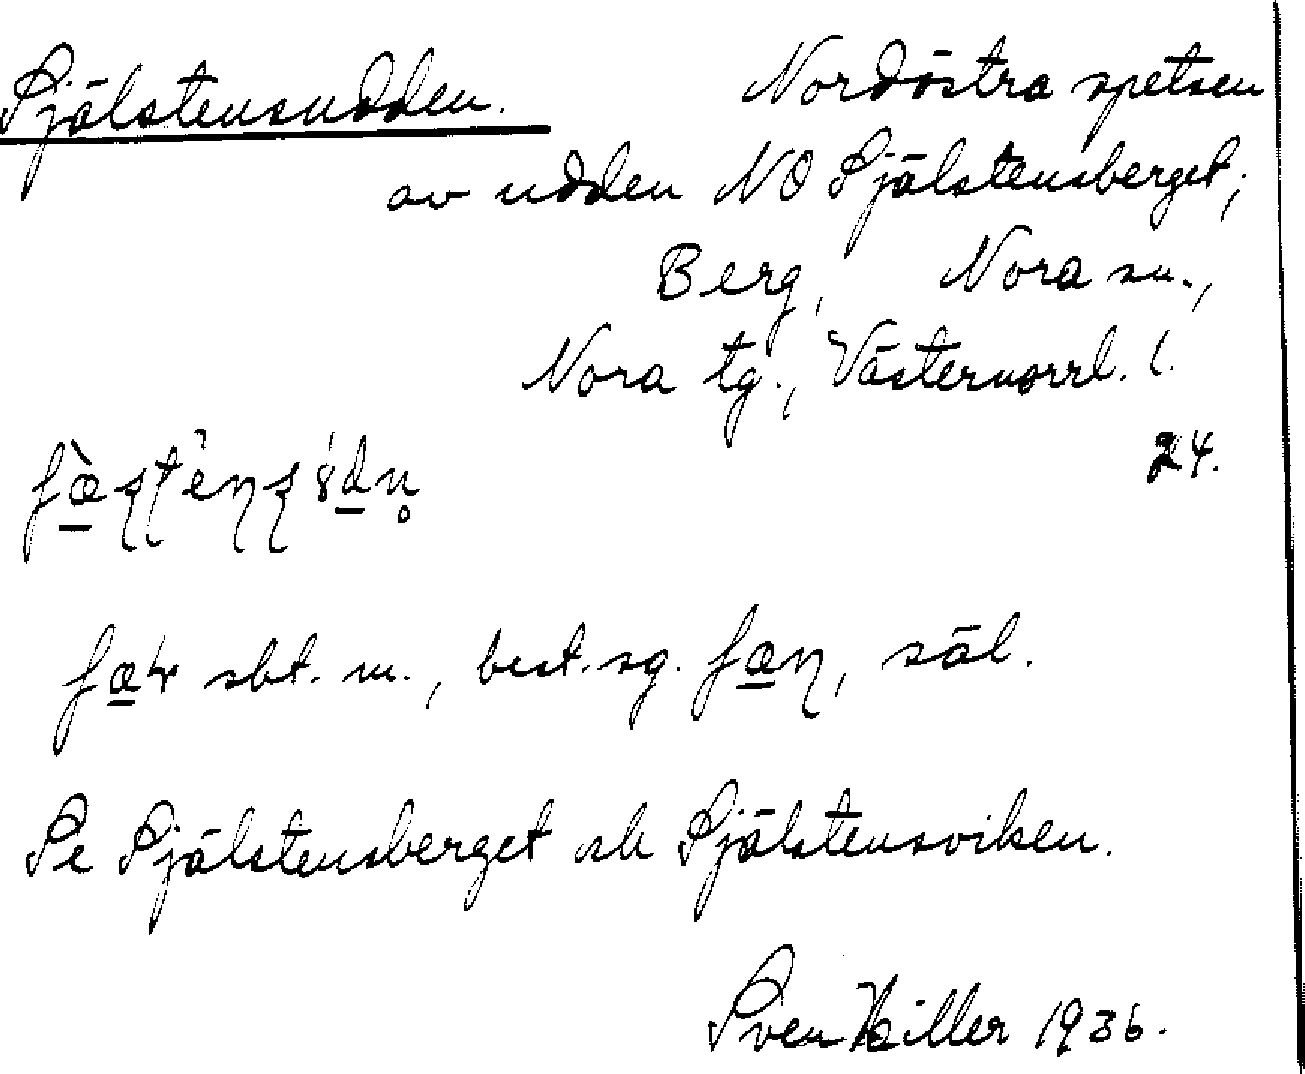 Själstensudden. Nordöstra spetsen
av udden NO Själstensberget;
Berg, Nora sn.,
Nora tg., Västernorrl. l.
24.
sbt. m., best. sg. säl.
Se Själstensberget och Själstensviken.
Sven Hiller 1936.